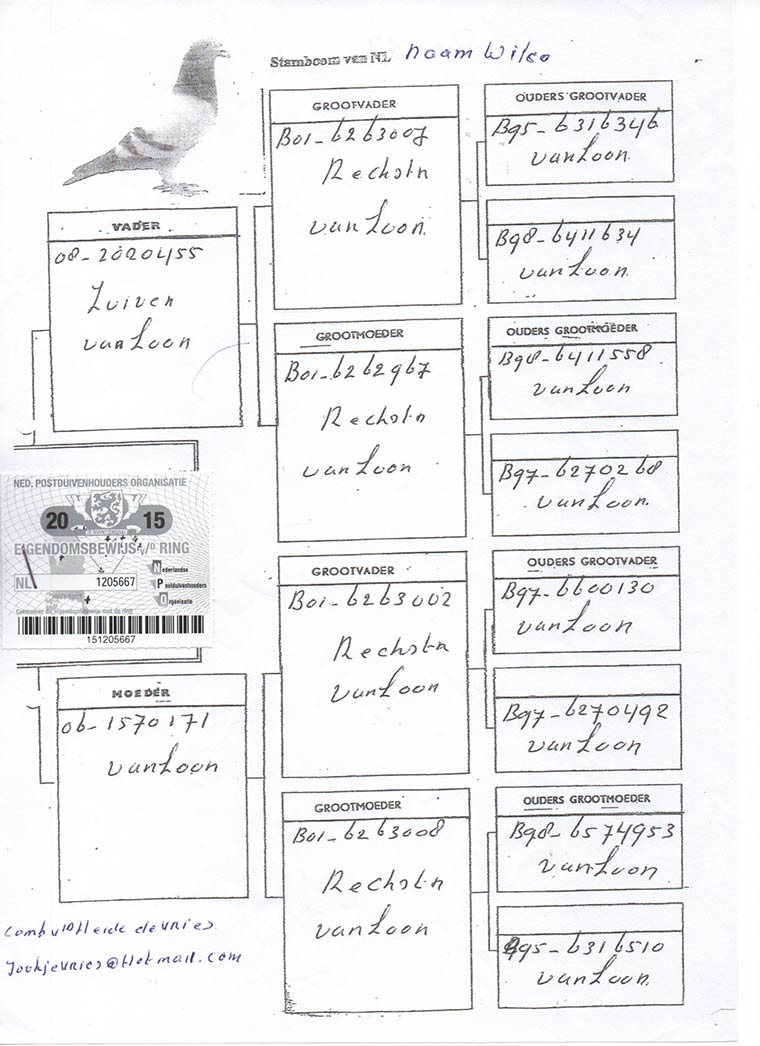 Stamboom van NL naam Wilco
GROOTVADER
B01-6263007
Rechstn
van Loon
OUDERS GROOTVADER
B95-6316346
van Loon
B98-6411634
van Loon
VADER
08-2020455
Zuiver
van Loon
GROOTMOEDER
B01-6262967
Rechstn
van Loon
OUDERS GROOTMOEDER
B98-6411558
van Loon
B97-6270268
van Loon
NED. POSTDUIVENHOUDERS ORGANISATIE
20 15
EIGENDOMSBEWIJS V/D RING
NL 1205667
Nederlandse
Postduivenhouders
Organisatie
151205667
GROOTVADER
B01-6263002
Rechstn
van Loon
OUDERS GROOTVADER
B97-6600130
van Loon
B97-6270492
van Loon
MOEDER
06-1570171
van Loon
GROOTMOEDER
B01-6263008
Rechstn
van Loon
OUDERS GROOTMOEDER
B98-6574953
van Loon
B95-6316510
van Loon
Comb v/d Heide de Vries.
@Hotmail.com